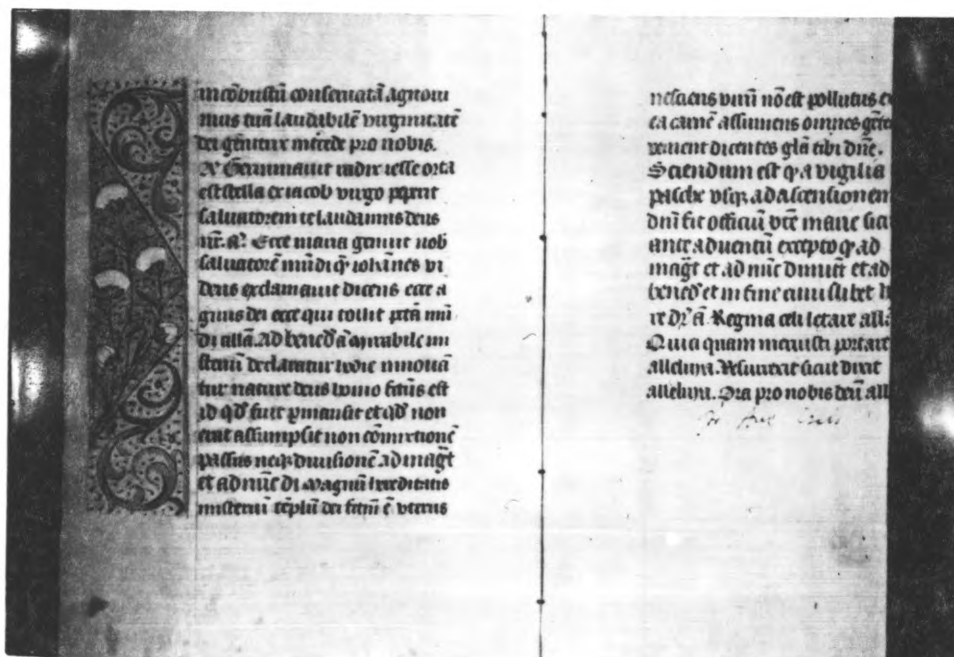 incōbustū conseruatā agnoui
mus tuā laudabilē virginitatē
dei genitrix intcede pro nobis.
Añ Germinauit radix iesse orta
est stella ex iacob virgo peperit
saluatorem te laudamus deus
nr̄. Añ Ecce maria genuit nob
saluatorē mūdi quē iohānes vi
dens exclamauit dicens ecce a
gnus dei ecce qui tollit pctā mū
di allā. Ad bened̄ añ Mirabile mi
steriū declaratur hodie innouā
tur nature deus homo factus est
id qd̄ fuit pmansit et qd̄ non
erat assumpsit non cōmixtionē
passus neqꝫ diuisionē ad magt̄
et ad nūc di Magnū hereditatis
misteriū tēplū dei factū ē vterus
nesciens virū nō est pollutus ex
ea carnē assumens omnes gēte
venient dicentes glā tibi dn̄e.
Sciendum est qꝫ a vigilia
pasche vsqꝫ ad ascensionem
dn̄i fit officiū btē marie sicut
ante aduentū excepto qꝫ ad
magt̄ et ad nūc dimitt̄ et ad
bened̄ et in fine cuiuslibet h
re dr̄ añ Regina celi letare allā
Quia quam meruisti portare
alleluya. Resurrexit sicut dixit
alleluya. Ora pro nobis deū all